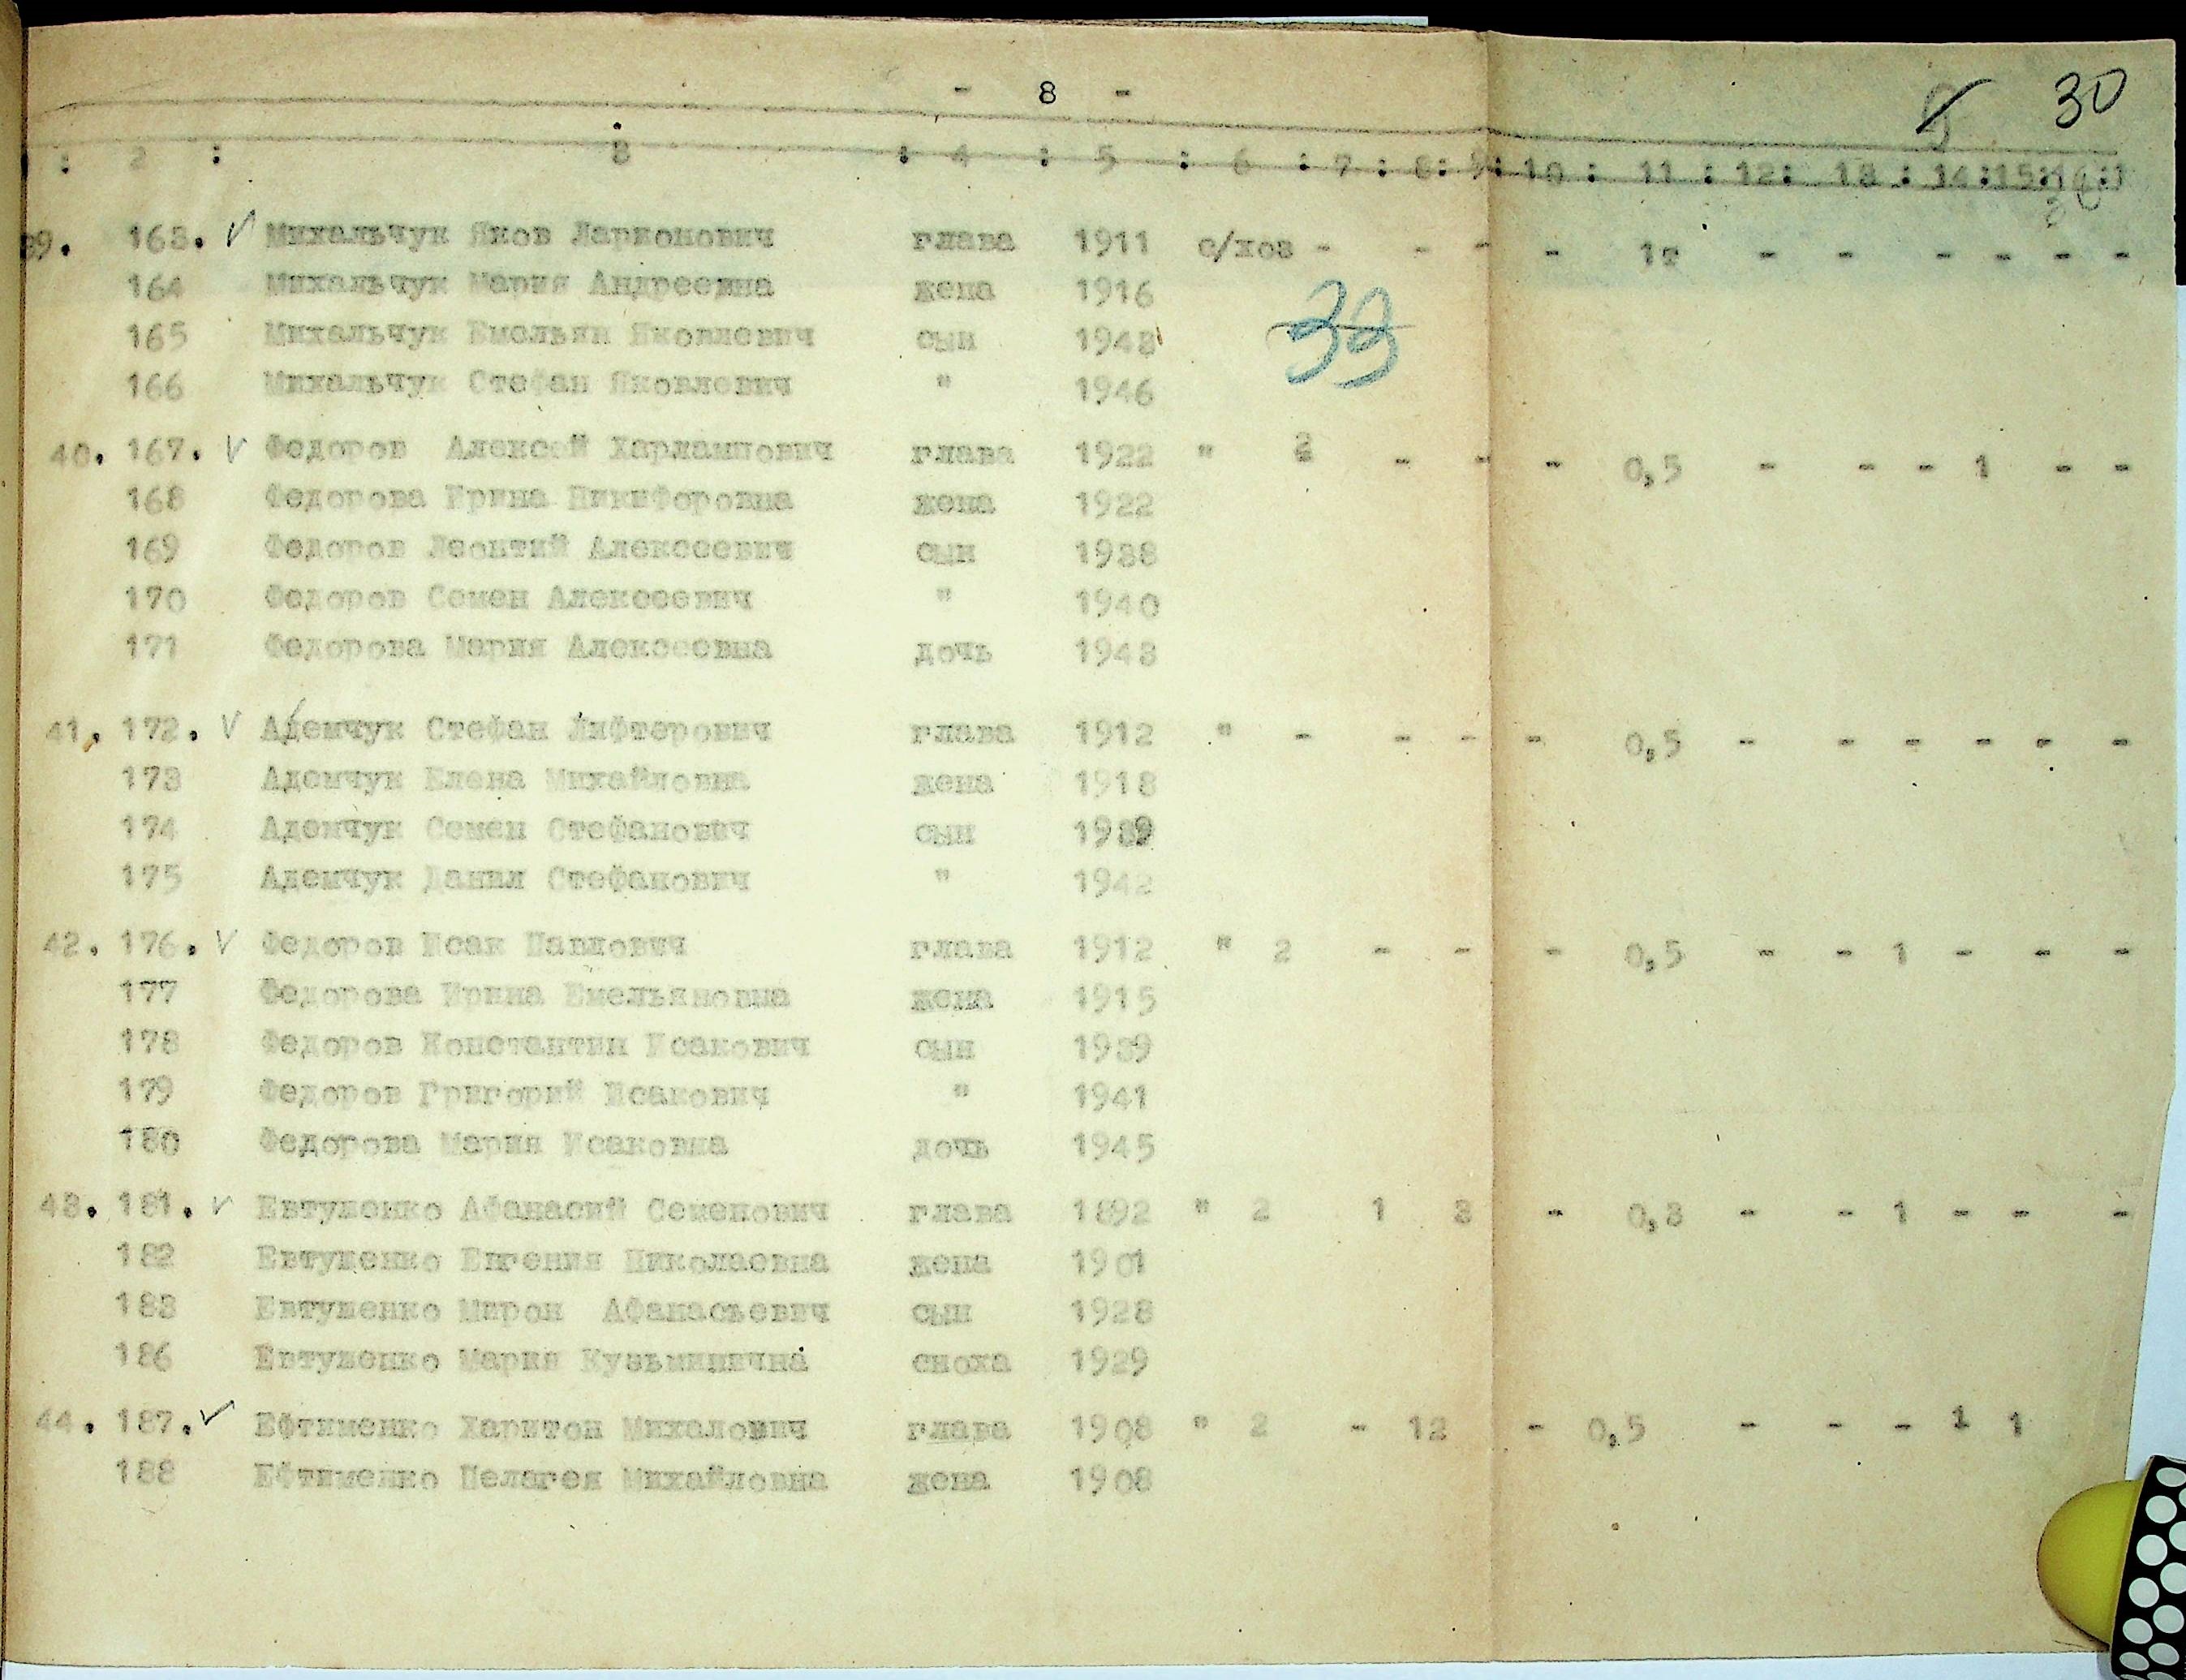 - 8 -
30
: 2 : 3 : 4 : 5 : 6 : 7 : 8: 9: 10 : 11 : 12: 13 : 14:15:16:1
39. 163. V Михальчук Яков Ларионович глава 1911 с/хоз - - - - 1т - - - - - -
164 Михальчук Мария Андреевна жена 1916
165 Михальчук Емельян Яковлевич сын 1943
39
166 Михальчук Стефан Яковлевич " 1946
40. 167. V Федоров Алексей Харлампович глава 1922 " 2 - - - 0,5 - - - 1 - -
168 Федорова Ирина Никифоровна жена 1922
169 Федоров Леонтий Алексеевич сын 1938
170 Федоров Семен Алексеевич " 1940
171 Федорова Мария Алексеевна дочь 1943
41. 172. V Адемчук Стефан Лифтерович глава 1912 " - - - - 0,5 - - - - - -
173 Адемчук Елена Михайловна жена 1918
174 Адемчук Семен Стефанович сын 1939
175 Адемчук Данил Стефанович " 1942
42. 176. V Федоров Исак Павлович глава 1912 " 2 - - - 0,5 - - 1 - - -
177 Федорова Ирина Емельяновна жена 1915
178 Федоров Константин Исакович сын 1939
179 Федоров Григорий Исакович " 1941
180 Федорова Мария Исаковна дочь 1945
43. 181. V Евтушенко Афанасий Семенович глава 1892 " 2 1 3 - 0,3 - - 1 - - -
182 Евтушенко Евгения Николаевна жена 1901
183 Евтушенко Мирон Афанасьевич сын 1928
186 Евтушенко Мария Кузьминична сноха 1929
44. 187. V Ефтименко Харитон Михалович глава 1908 " 2 - 12 - 0,5 - - - 1 1
188 Ефтименко Пелагея Михайловна жена 1908